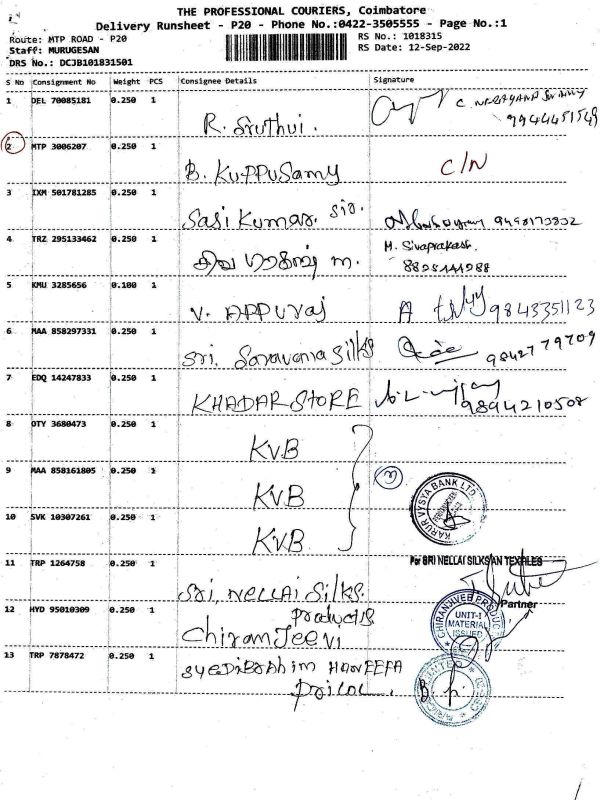 THE PROFESSIONAL COURIERS, Coimbatore
Delivery Runsheet - P20 - Phone No.:0422-3505555 - Page No.:1
Route: MTP ROAD - P20
RS No.: 1018315
Staff: MURUGESAN
RS Date: 12-Sep-2022
DRS No.: DCJB101831501
S No Consignment No Weight PCS Consignee Details Signature
1 DEL 70085181 0.250 1
R. Sruthui.
9944451549
2 MTP 3006207 0.250 1
B. Kuppusamy C/N
3 IXM 501781285 0.250 1
Sasi Kumar. Sir. 9498173832
4 TRZ 295133462 0.250 1
M. Sivaprakash.
5 KMU 3285656 0.100 1
V. APPURAJ 9843351123
6 MAA 858297331 0.250 1
Sri. Saravana Silks 9842779709
7 EDQ 14247833 0.250 1
KHADAR STORE 9894210508
8 OTY 3680473 0.250 1
KVB
9 MAA 858161805 0.250 1
KVB
KARUR VYSYA BANK LTD
10 SVK 10307261 0.250 1
KVB
11 TRP 1264758 0.250 1
For SRI NELLAI SILKSAN TEXTILES
Sri. NELLAI Silks.
Partner
12 HYD 95010309 0.250 1
Products
Chiranjeevi
CHIRANJEEVE PRODUC
UNIT-I
MATERIAL
ISSUED
13 TRP 7878472 0.250 1